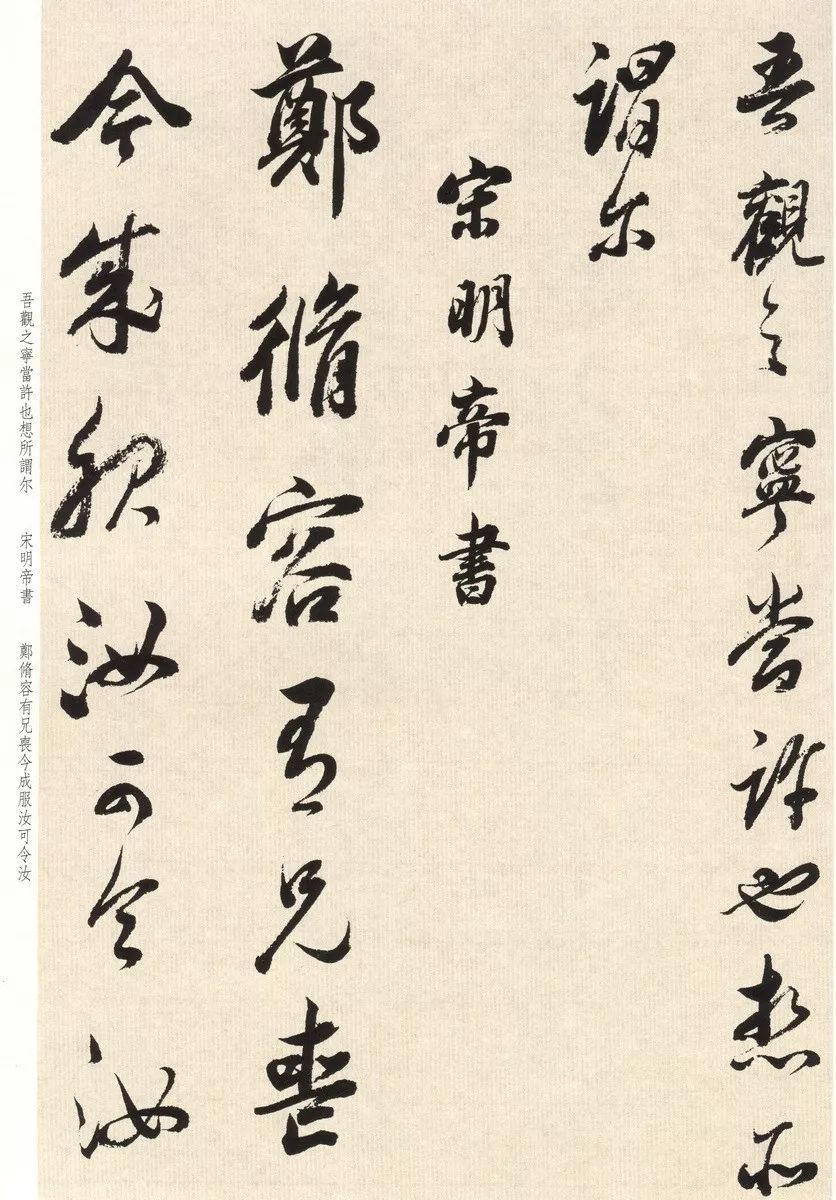 吾觀之寧當許也想所
謂尔
宋明帝書
鄭脩容有兄喪
今成服汝可令汝
吾觀之寧當許也想所謂尔 宋明帝書 鄭脩容有兄喪今成服汝可令汝